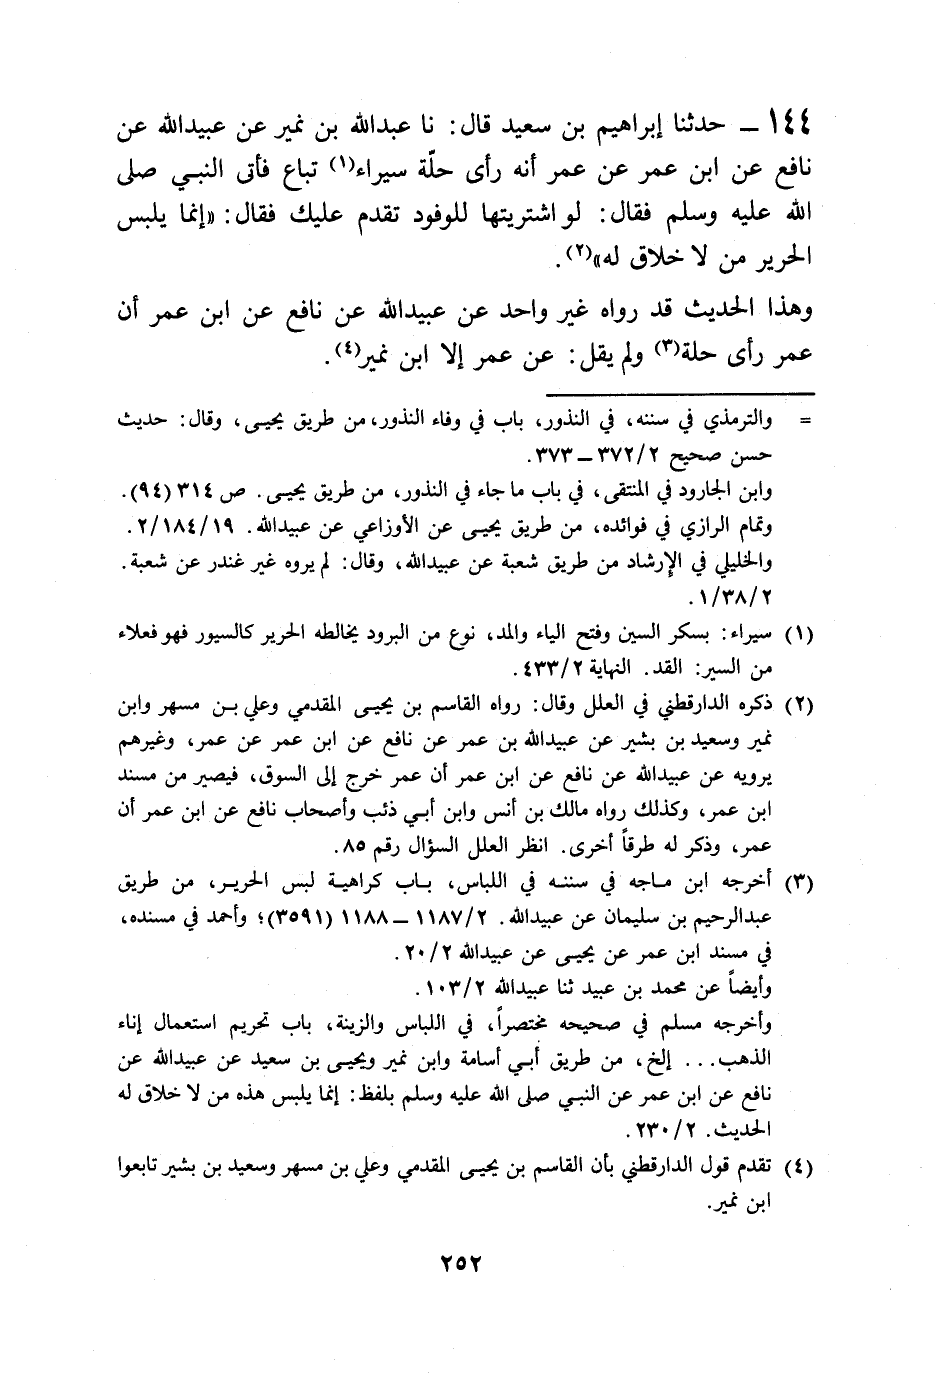 ١٤٤ ــ حدثنا إبراهيم بن سعيد قال: نا عبدالله بن نمير عن عبيدالله عن
نافع عن ابن عمر عن عمر أنه رأى حلّة سيراء(١) تباع فأتى النبي صلى
الله عليه وسلم فقال: لو اشتريتها للوفود تقدم عليك فقال: «إنما يلبس
الحرير من لا خلاق له»(٢).
وهذا الحديث قد رواه غير واحد عن عبيدالله عن نافع عن ابن عمر أن
عمر رأى حلة(٣) ولم يقل: عن عمر إلا ابن نمير(٤).
= والترمذي في سننه، في النذور، باب في وفاء النذور، من طريق يحيى، وقال: حديث
حسن صحيح ٢/ ٣٧٢ ــ ٣٧٣.
وابن الجارود في المنتقى، في باب ما جاء في النذور، من طريق يحيى. ص ٣١٤ (٩٤).
وتمام الرازي في فوائده، من طريق يحيى عن الأوزاعي عن عبيدالله. ١٩/ ١٨٤/ ٢.
والخليلي في الإرشاد من طريق شعبة عن عبيدالله، وقال: لم يروه غير غندر عن شعبة.
٢/ ٣٨/ ١.
(١) سيراء: بسكر السين وفتح الياء والمد، نوع من البرود يخالطه الحرير كالسيور فهو فعلاء
من السير: القد. النهاية ٢/ ٤٣٣.
(٢) ذكره الدارقطني في العلل وقال: رواه القاسم بن يحيى المقدمي وعلي بن مسهر وابن
نمير وسعيد بن بشير عن عبيدالله بن عمر عن نافع عن ابن عمر عن عمر، وغيرهم
يرويه عن عبيدالله عن نافع عن ابن عمر أن عمر خرج إلى السوق، فيصير من مسند
ابن عمر، وكذلك رواه مالك بن أنس وابن أبي ذئب وأصحاب نافع عن ابن عمر أن
عمر، وذكر له طرقاً أخرى. انظر العلل السؤال رقم ٨٥.
(٣) أخرجه ابن ماجه في سننه في اللباس، باب كراهية لبس الحرير، من طريق
عبدالرحيم بن سليمان عن عبيدالله. ٢/ ١١٨٧ ــ ١١٨٨ (٣٥٩١)؛ وأحمد في مسنده،
في مسند ابن عمر عن يحيى عن عبيدالله ٢/ ٢٠.
وأيضاً عن محمد بن عبيد ثنا عبيدالله ٢/ ١٠٣.
وأخرجه مسلم في صحيحه مختصراً، في اللباس والزينة، باب تحريم استعمال إناء
الذهب... إلخ، من طريق أبي أسامة وابن نمير ويحيى بن سعيد عن عبيدالله عن
نافع عن ابن عمر عن النبي صلى الله عليه وسلم بلفظ: إنما يلبس هذه من لا خلاق له
الحديث. ٢/ ٢٣٠.
(٤) تقدم قول الدارقطني بأن القاسم بن يحيى المقدمي وعلي بن مسهر وسعيد بن بشير تابعوا
ابن نمير.
٢٥٢